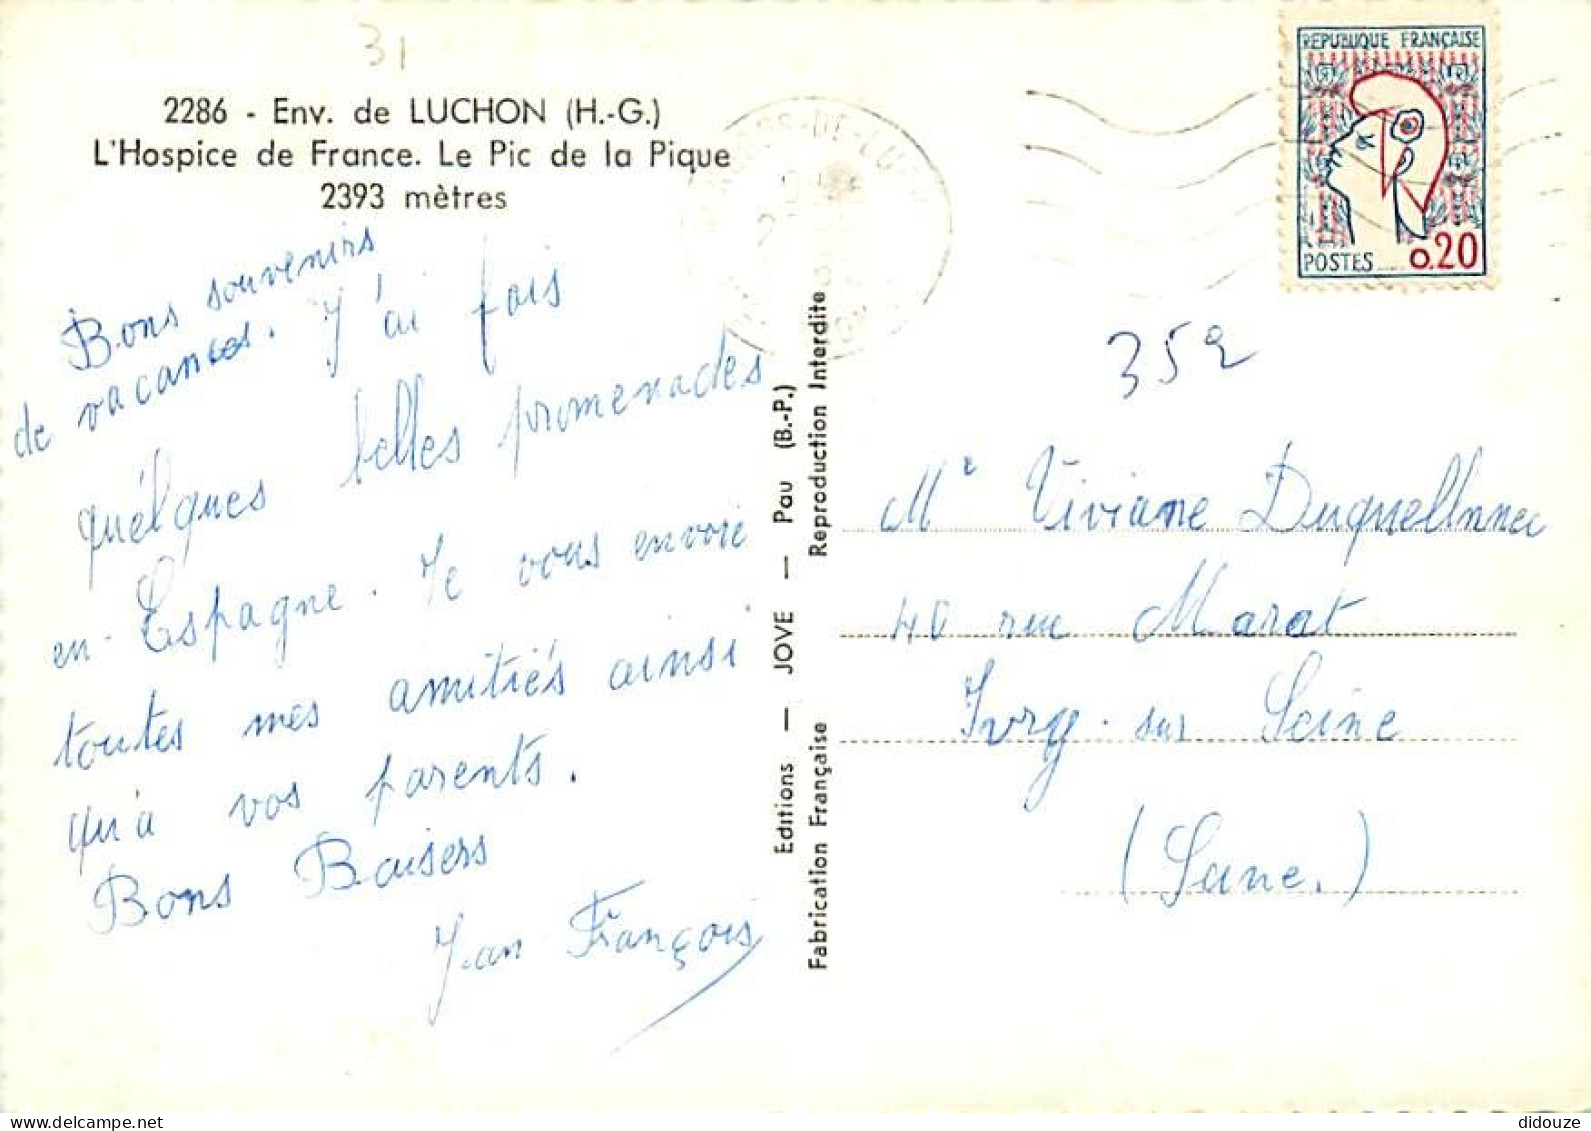 31
2286 - Env. de LUCHON (H.-G.)
L'Hospice de France. Le Pic de la Pique
2393 mètres
Bons souvenirs
de vacances. J'ai fais
quélques belles promenades
en Espagne. Je vous envoie
toutes mes amitiés ainsi
qu'à vos parents.
Bons Baisers
Jean François
Editions — JOVE — Pau (B.-P.)
Fabrication Française Reproduction Interdite
REPUBLIQUE FRANÇAISE
POSTES 0.20
352
Me Viviane
40 rue Marat
Ivry sur Seine
(Seine.)
didouze